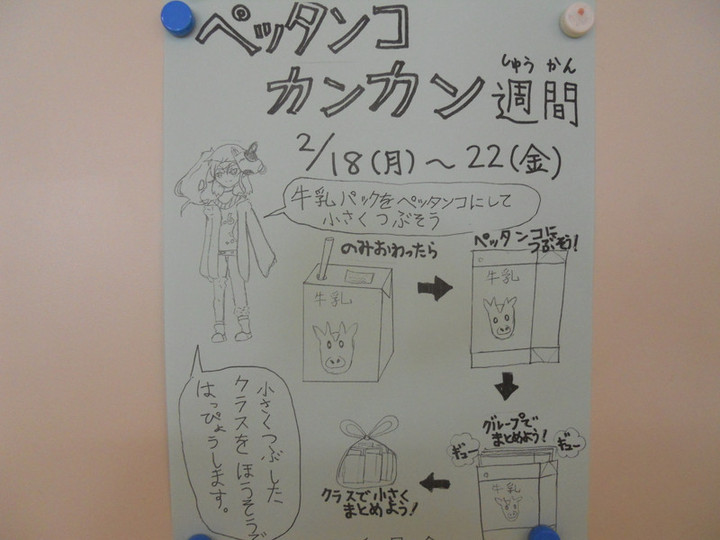 ペッタンコ
カンカン週間
しゅうかん
2/18(月)～22(金)
牛乳パックをペッタンコにして
小さくつぶそう
のみおわったら
牛乳
ペッタンコに
つぶそう!
牛乳
グループで
まとめよう!
ギュー
ギュー
牛乳
クラスで小さく
まとめよう!
小さくつぶした
クラスをほうそうで
はっぴょうします。